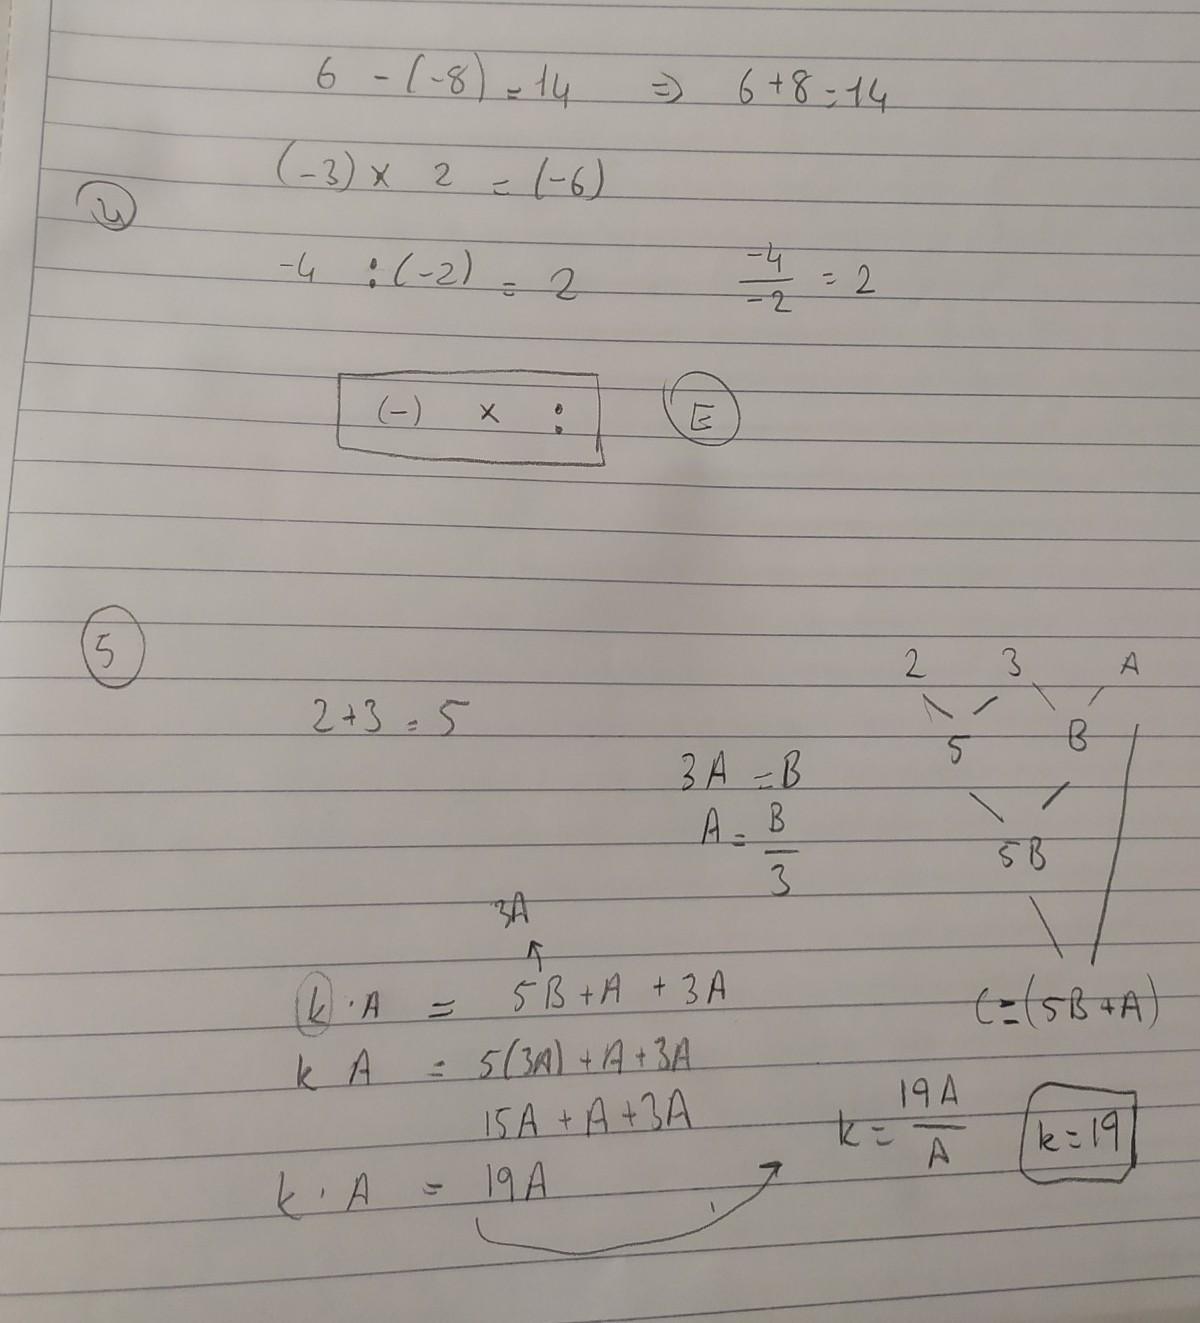 6 - (-8) = 14 => 6+8 = 14
(-3) x 2 = (-6)
4
-4 : (-2) = 2 -4/-2 = 2
(-) x : E
5
2 3 A
2+3 = 5
5 B
3A = B
A = B/3
5B
3A
k · A = 5B + A + 3A
C = (5B + A)
k A = 5(3A) + A + 3A
15A + A + 3A
k = 19A/A k = 19
k · A = 19A